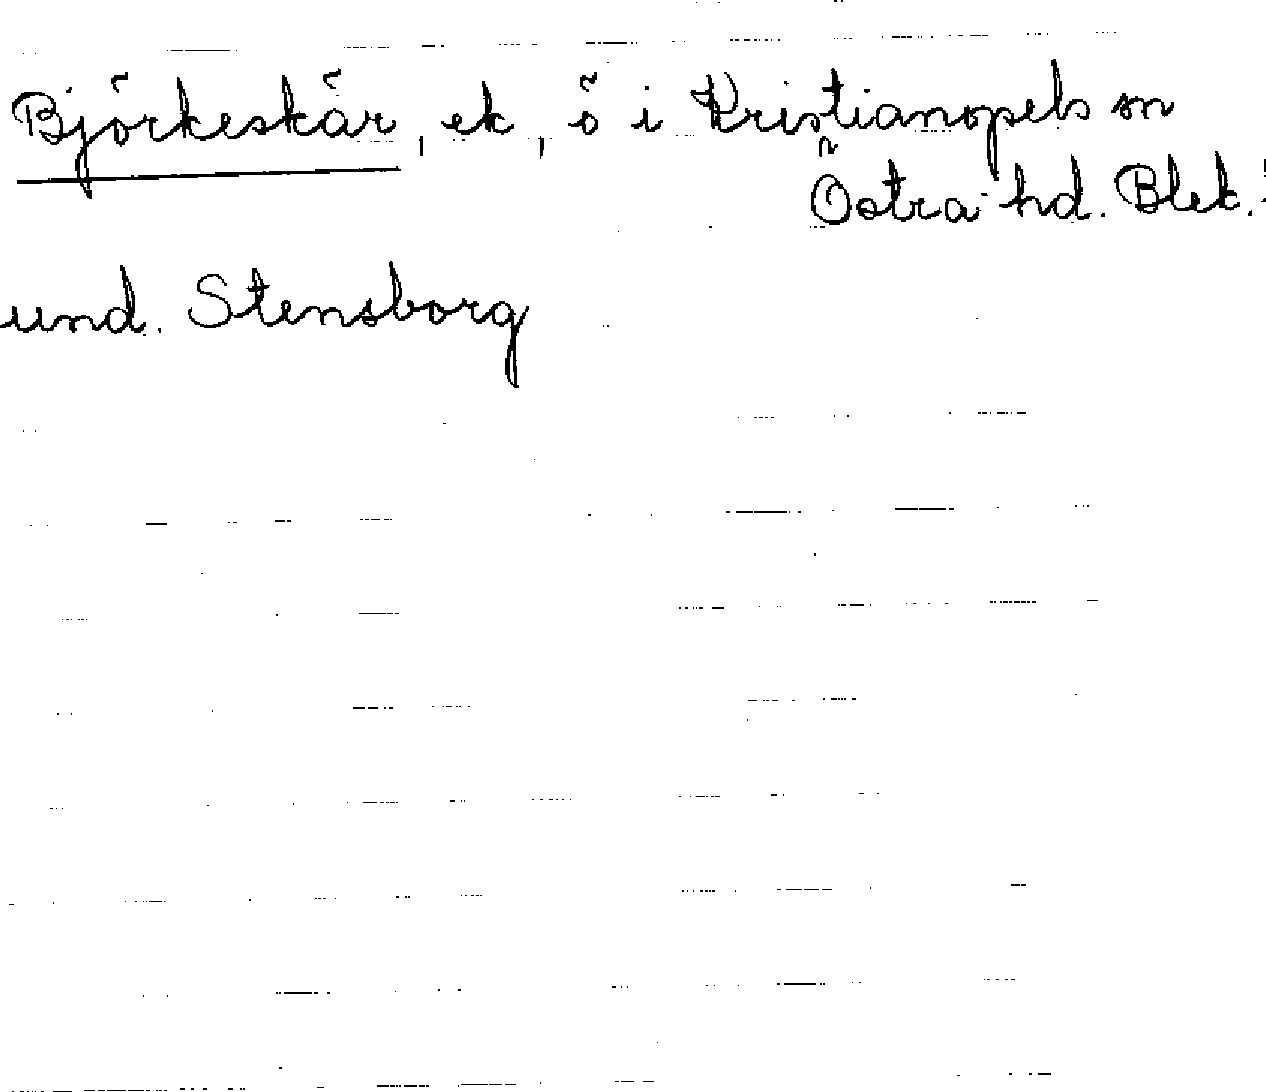 Björkeskär, ek, ö i Kristianopels sn
Östra hd. Blek.
und. Stensborg